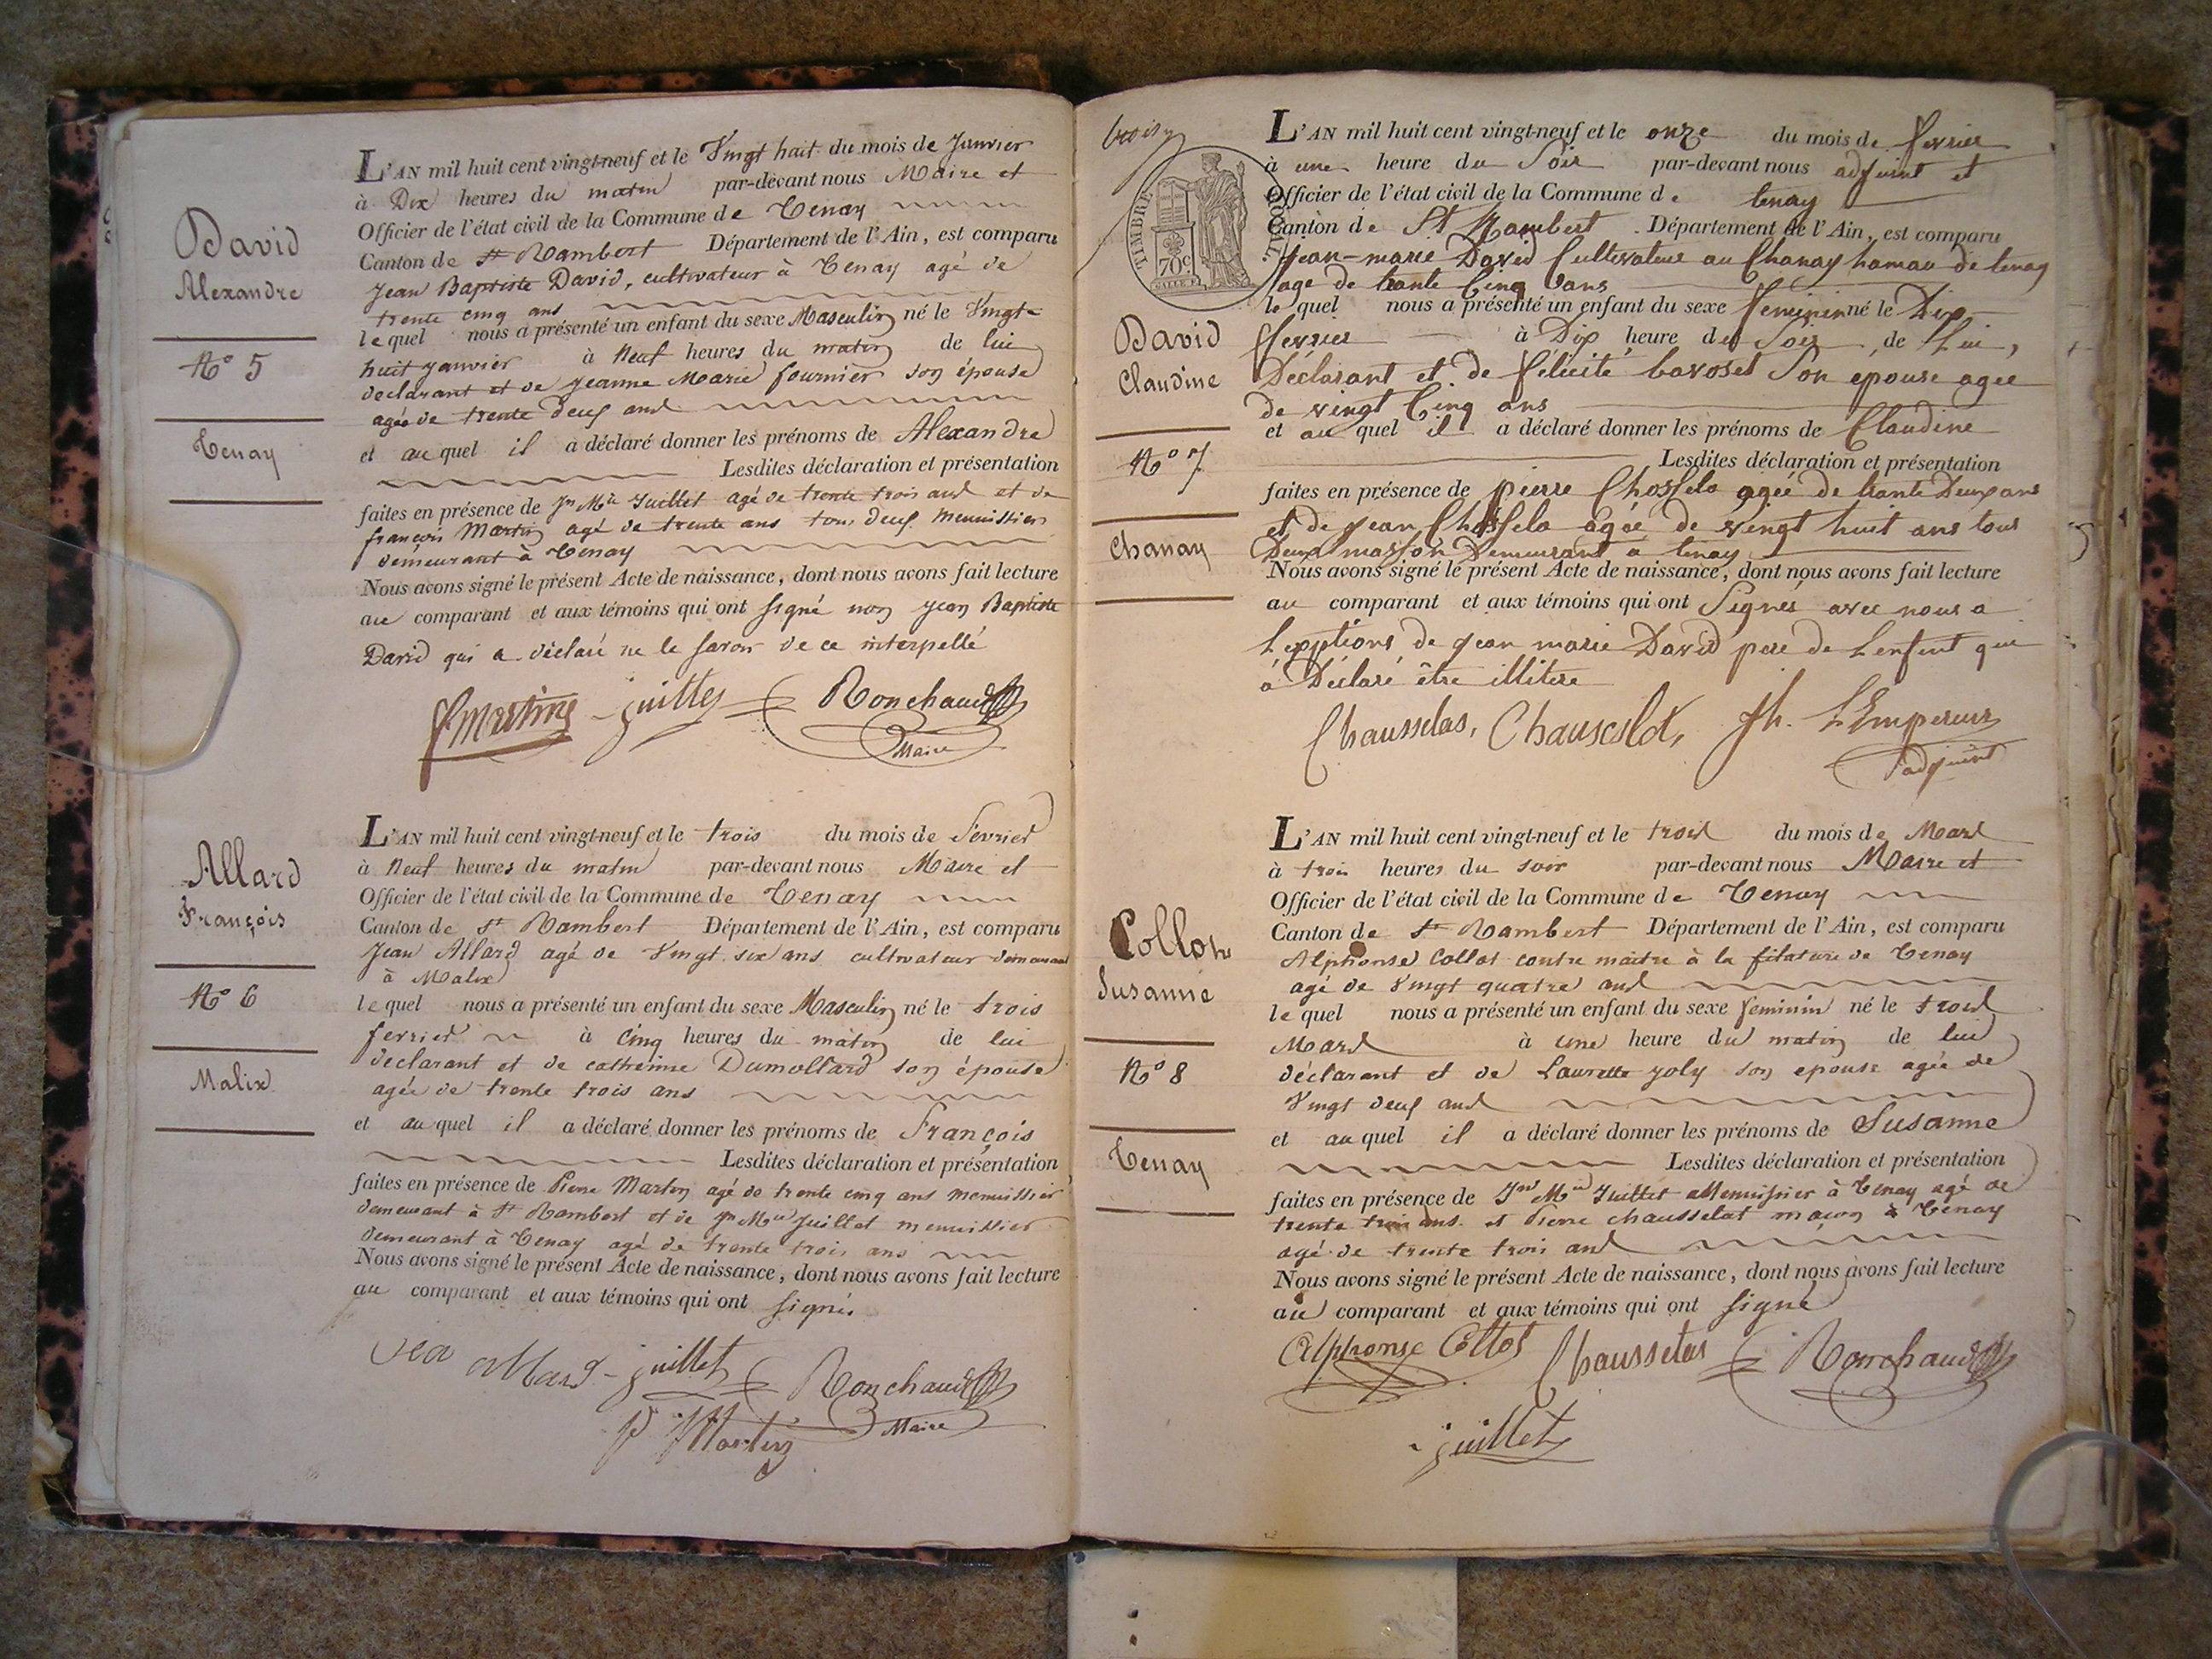 David
Alexandre
N° 5
Tenay
L'AN mil huit cent vingt-neuf et le Vingt huit du mois de Janvier
à Dix heures du matin par-devant nous Maire et
Officier de l'état civil de la Commune de Tenay
Canton de St Rambert Département de l'Ain, est comparu
Jean Baptiste David, cultivateur à Tenay agé de
trente cinq ans
lequel nous a présenté un enfant du sexe Masculin né le Vingt
huit janvier à Neuf heures du matin de lui
declarant et de jeanne Marie fournier son épouse
agée de trente deux ans
et au quel il a déclaré donner les prénoms de Alexandre
Lesdites déclaration et présentation
faites en présence de Jn Mie Juillet agé de trente trois ans et de
françois Martin agé de trente ans tous deux Menuissiers
demeurant à Tenay
Nous avons signé le présent Acte de naissance, dont nous avons fait lecture
au comparant et aux témoins qui ont signé non jean Baptiste
David qui a déclaré ne le savoir de ce interpellé
fmartin juillet Ronchaud
Maire
Allard
François
N° 6
Malix
L'AN mil huit cent vingt-neuf et le trois du mois de Fevrier
à Neuf heures du matin par-devant nous Maire et
Officier de l'état civil de la Commune de Tenay
Canton de St Rambert Département de l'Ain, est comparu
Jean Allard agé de Vingt six ans cultivateur demeurant
à Malix
lequel nous a présenté un enfant du sexe Masculin né le trois
fevrier à Cinq heures du matin de lui
declarant et de catherine Dumollard son épouse
agée de trente trois ans
et au quel il a déclaré donner les prénoms de François
Lesdites déclaration et présentation
faites en présence de Pierre Martin agé de trente cinq ans menuissier
demeurant à St Rambert et de Jn Mie Juillet menuissier
demeurant à Tenay agé de trente trois ans
Nous avons signé le présent Acte de naissance, dont nous avons fait lecture
au comparant et aux témoins qui ont signés
allard juillet Ronchaud
P Martin Maire
TIMBRE ROYAL
70c
David
Claudine
N° 7
Chanay
L'AN mil huit cent vingt-neuf et le onze du mois de fevrier
à une heure du Soir par-devant nous adjoint et
Officier de l'état civil de la Commune de tenay
Canton de St Rambert Département de l'Ain, est comparu
jean-marie David Cultivateur au Chanay hamau de tenay
age de trante Cinq ans
le quel nous a présenté un enfant du sexe feminin né le Dix
fevrier à Dix heure du Soir de Lui,
Déclarant et de félicité Savoset Son epouse agee
de vingt Cinq ans
et au quel il a déclaré donner les prénoms de Claudine
Lesdites déclaration et présentation
faites en présence de pierre Chosselo agée de trante Deux ans
et de jean Chosselo agée de vingt huit ans tous
Deux masson Demeurant a tenay
Nous avons signé le présent Acte de naissance, dont nous avons fait lecture
au comparant et aux témoins qui ont Signés avec nous a
Lexptions de jean marie David pere de Lenfent qui
a Déclaré être illitere
Chausselas, Chauscelot, Jh. LEmpereur
adjoint
Collot
Susanne
N° 8
Tenay
L'AN mil huit cent vingt-neuf et le trois du mois de Mars
à trois heures du soir par-devant nous Maire et
Officier de l'état civil de la Commune de Tenay
Canton de St Rambert Département de l'Ain, est comparu
Alphonse Collot contre maitre à la filature de Tenay
agé de Vingt quatre ans
lequel nous a présenté un enfant du sexe feminin né le trois
Mars à une heure du matin de lui
déclarant et de Laurette joly son epouse agée de
Vingt deux ans
et au quel il a déclaré donner les prénoms de Susanne
Lesdites déclaration et présentation
faites en présence de Jn Mie Juillet Menuissier à Tenay agé de
trente trois ans et Pierre chausselat maçon à Tenay
agé de trente trois ans
Nous avons signé le présent Acte de naissance, dont nous avons fait lecture
au comparant et aux témoins qui ont signé
Alphonse Collot Chausselas Ronchaud
juillet